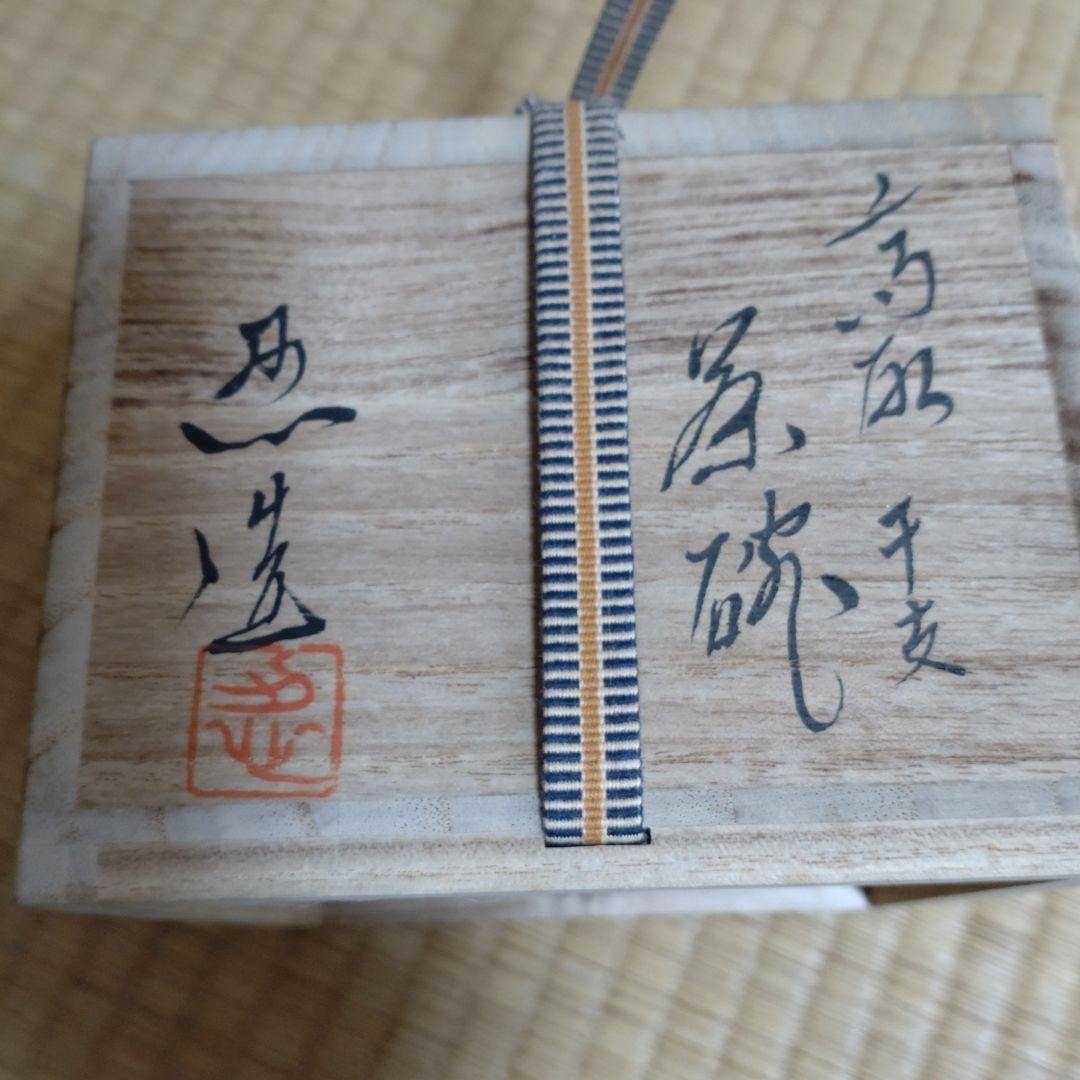 高取 干支
茶碗
造